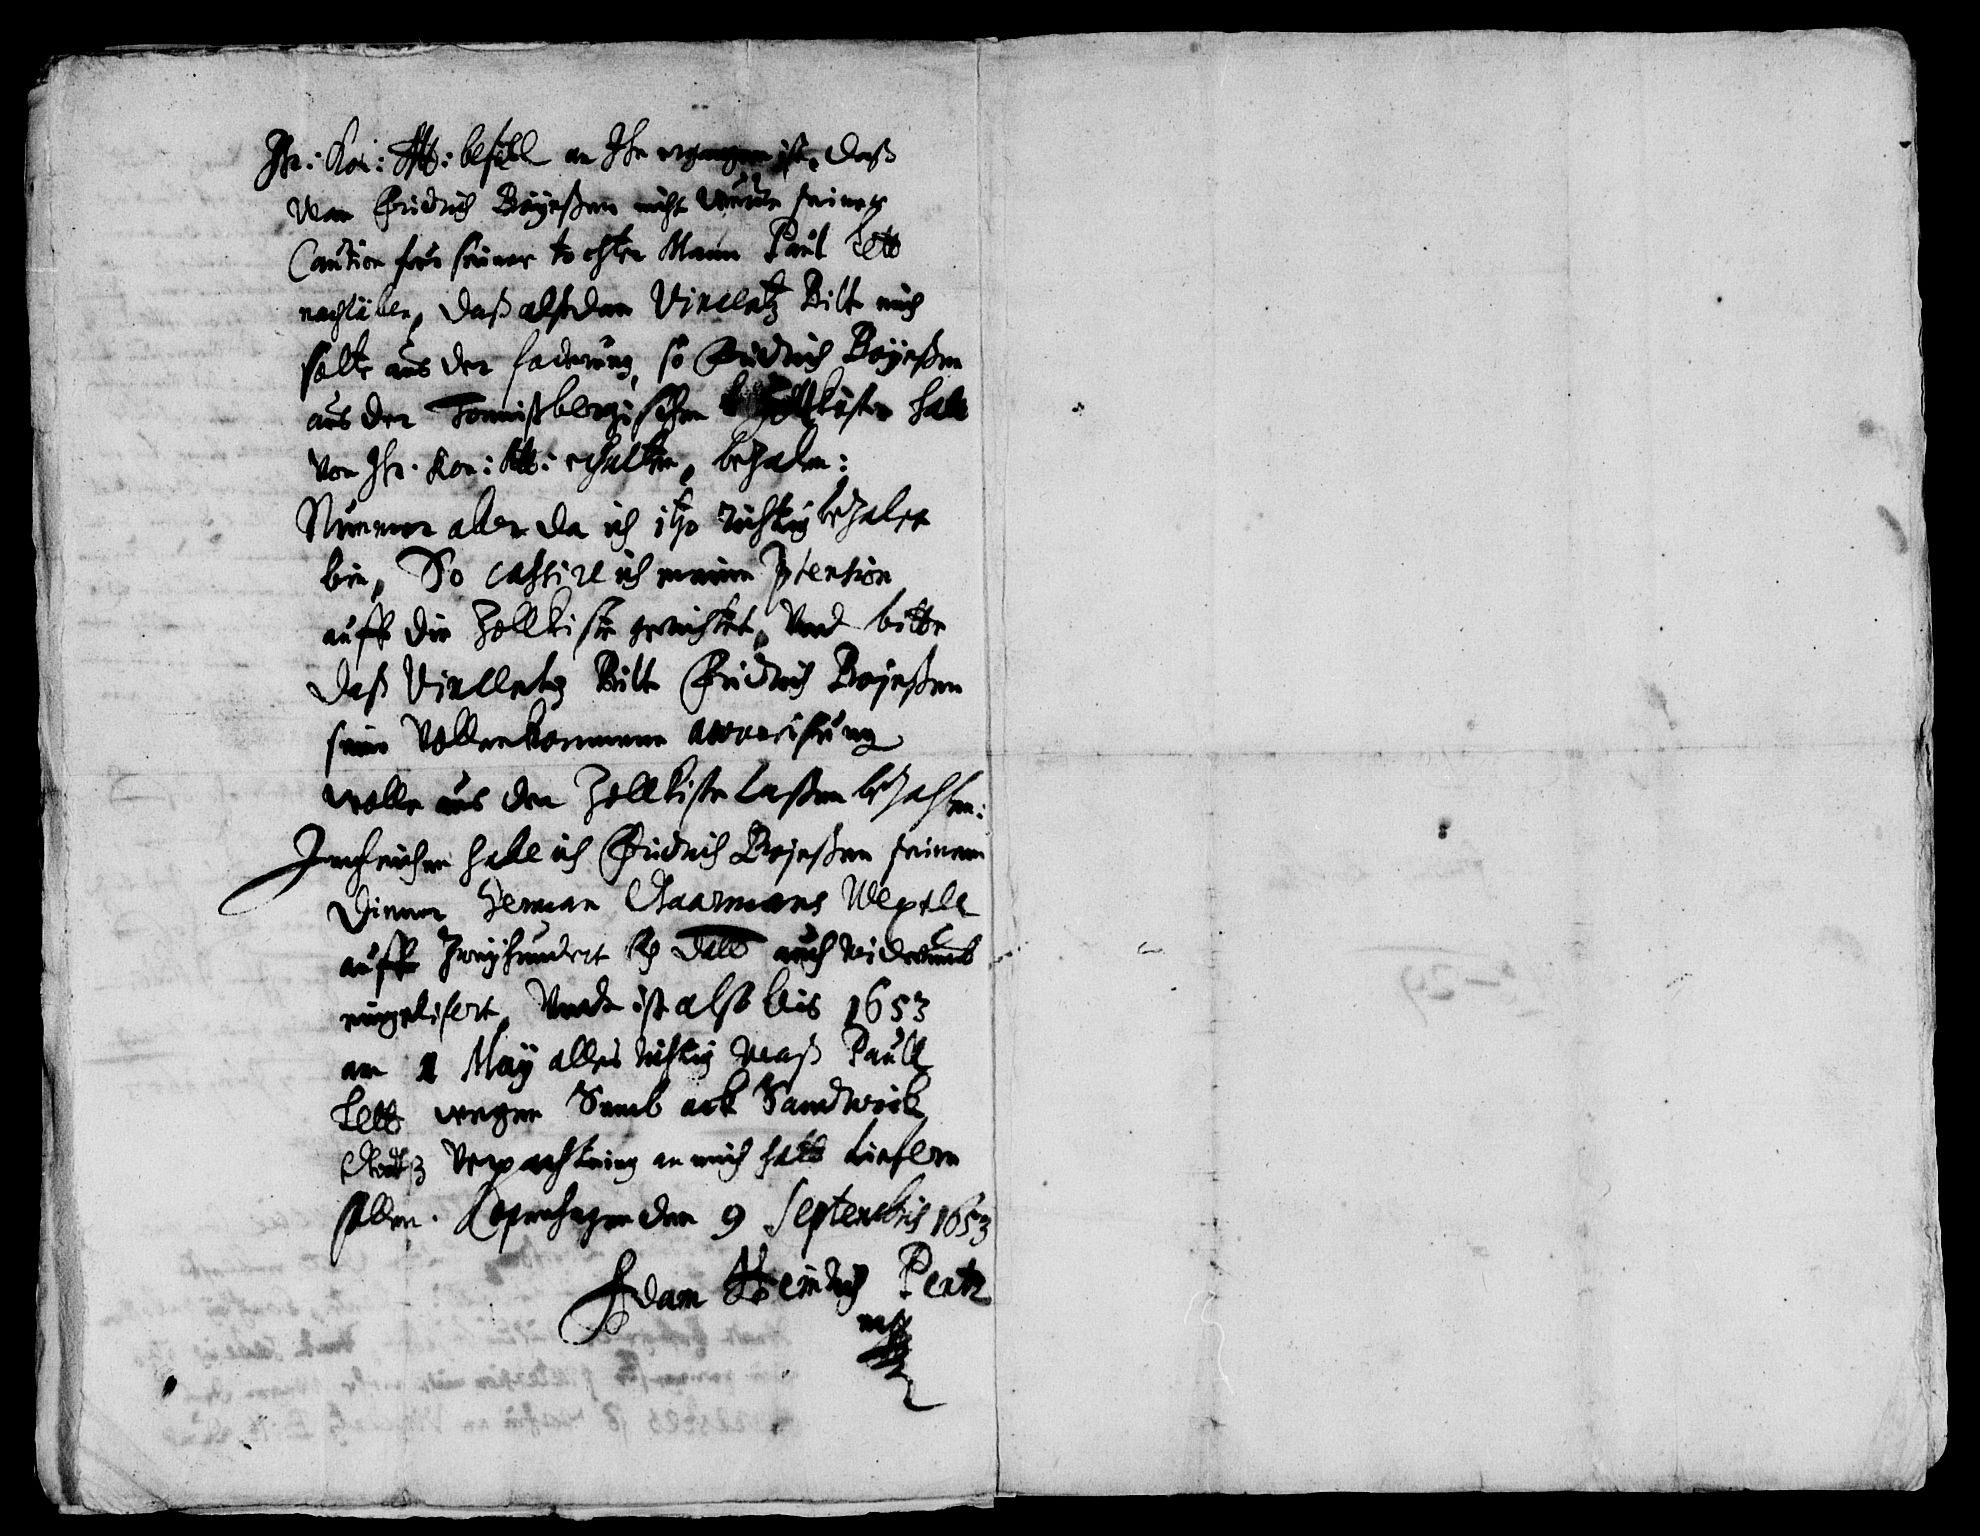 Ihr: Kon: Mtt: befehl an Ihn ergangen ist, daß
Wan Fridrich Böyeßen nicht würde seiner
Caution for seiner tochter Mann Paul Lett
nachläben, daß alsdan Vincentz Bilt mich
solte aus der foderung, so Fridrich Böyeßen
aus der Tonnißbergischen Zollkisten hatt
von Ihr. Kon: Mtt: erhalten, bezalen:
Nunmer aber da ich itzo richtig bezalet
bin, So cassire ich meine Jntention
auff die Zollkiste gerichtet, Und bitte
daß Vincentz Bilt Fridrich Böyeßen
seine Vollenkommene anweisung
wolle aus der Zollkiste laßen bezahlen:
Jngleichen habe ich Fridrich Bojeßen seinem
Diener Herman Gaarmans Wexele
auff Zweyhundert Rh Dall auch widerumb
eingelifert, Undt ist also bis 1653
am 1 Maÿ alles richtig waß Paull
Lett wegen Semb ock Sandwick
Verpachtung an mich hatt liefern
sollen. Kopenhagen den 9 Septembris 1653
Adam Heindrich Pentz